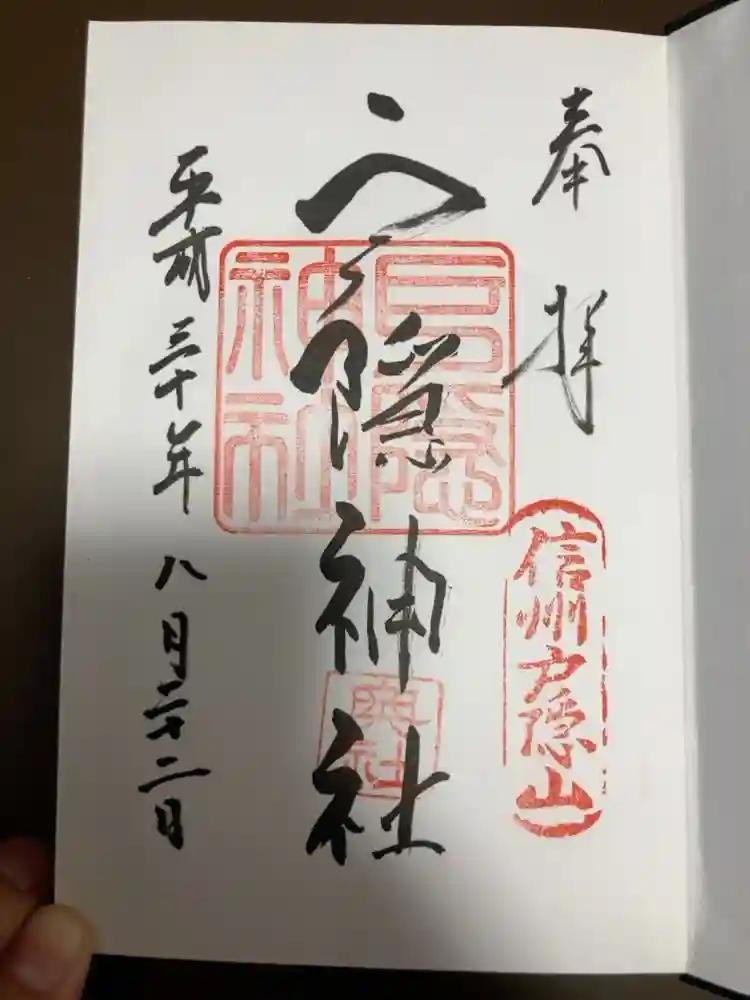 奉拝
信州戸隠山
戸隠神社
戸隠神社
奥社
平成三十年八月二十二日